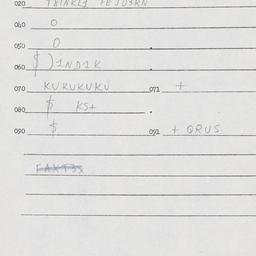 020 TRINKLY FEJDERN
040 O
050 O
060 $ ) INDIK
070 KUKUKUKU 071 +
080 $ KS+
090 $ 091 + QRUS